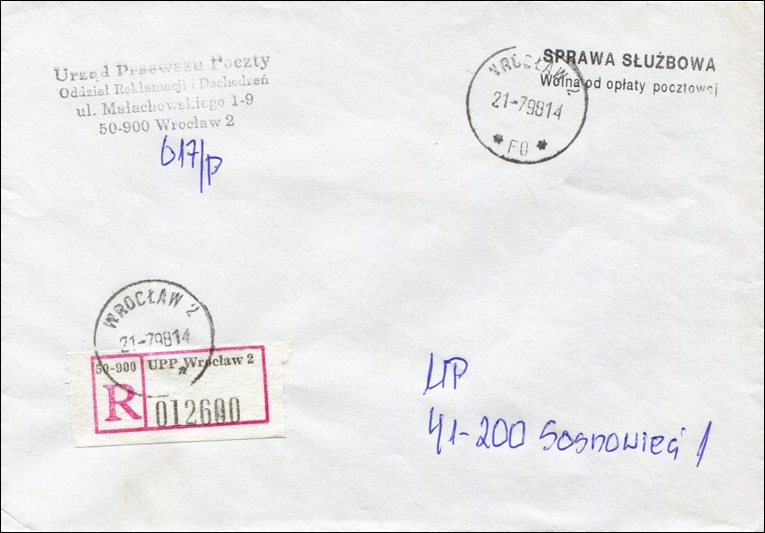 Urząd Przewozu Poczty
Oddział Reklamacji i Dochodzeń
ul. Małachowskiego 1-9
50-900 Wrocław 2
617/P
WROCŁAW 2
21-7.9814
* F0 *
SPRAWA SŁUŻBOWA
Wolna od opłaty pocztowej
WROCŁAW 2
21-7.9814
50-900 UPP Wrocław 2
R 012600
UP
41-200 Sosnowiec 1